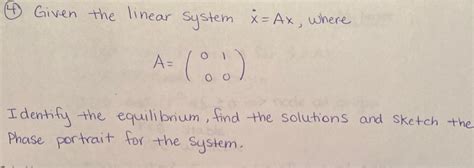 ④ Given the linear system ẋ = Ax, where
A = ( 0 1
0 0 )
Identify the equilibrium, find the solutions and sketch the
Phase portrait for the system.